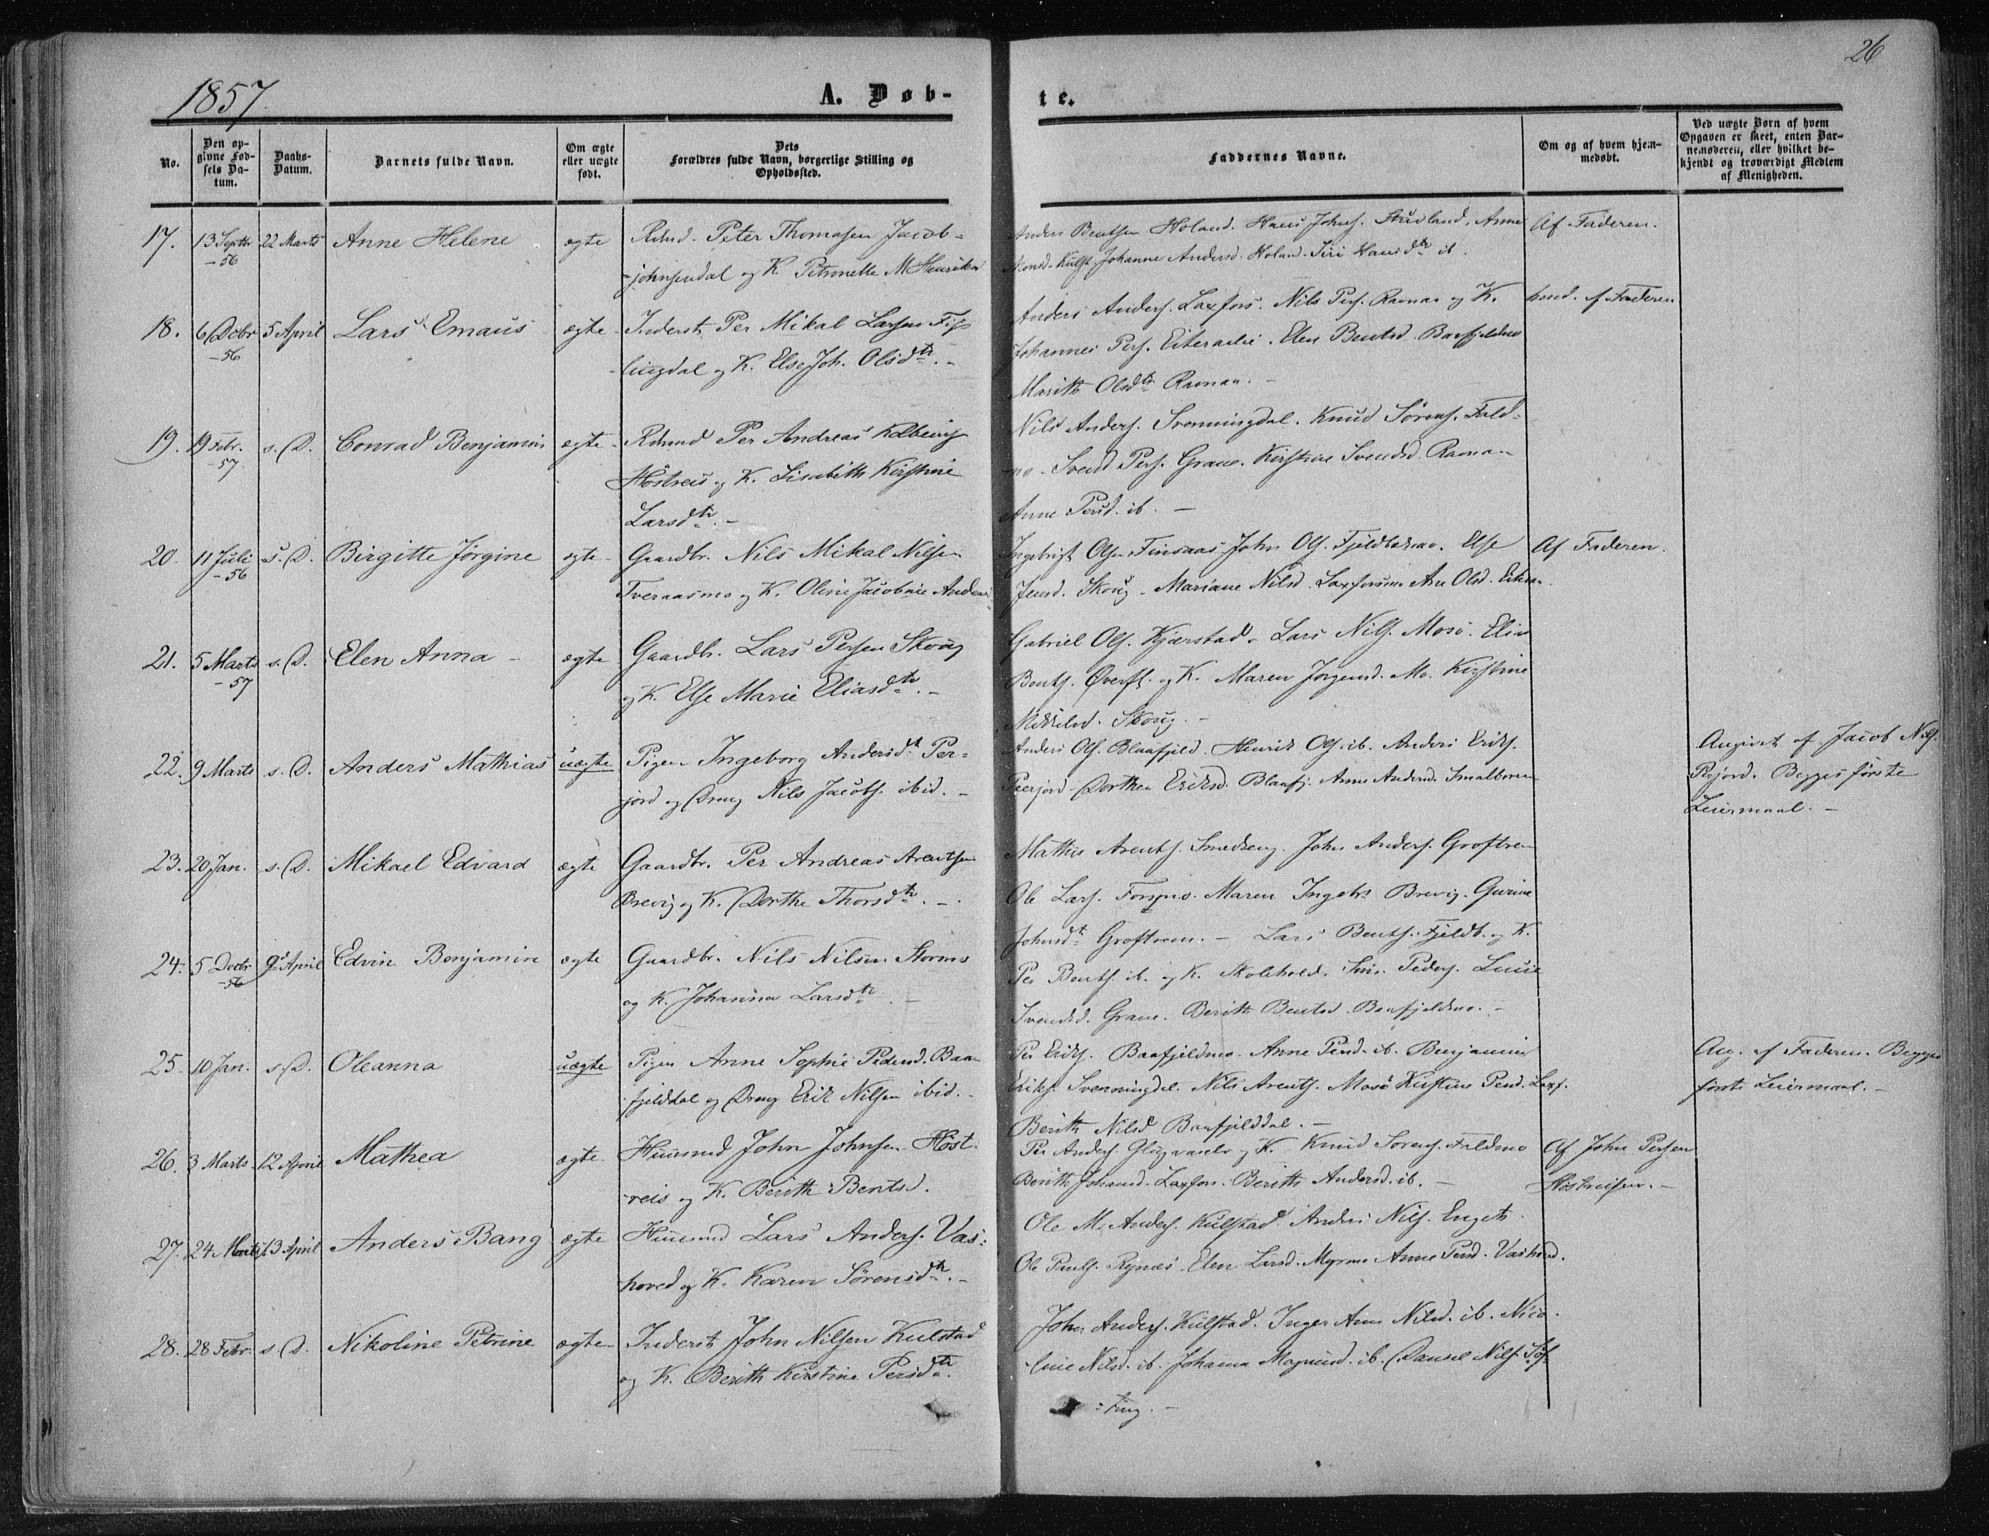 1857
A. Døb-
te.
26
No.
Den op-
givne Fød-
sels Da-
tum.
Daabs-
Datum.
Barnets fulde Navn.
Om ægte
eller uægte
født.
Dets
Forældres fulde Navn, borgerlige Stilling og
Opholdssted.
Faddernes Navne.
Om og af hvem hjem-
medøbt.
Ved uægte Børn af hvem
Opgaven er skeet, enten Bar-
nemoderen, eller hvilket be-
kjendt og troværdigt Medlem
af Menigheden.
17. 13 Septbr 22 Marts Anne Helene ægte Peter Thomasen Jacob-
-56
johnsendal og K. Petronelle M Henriks
Anders Bentsen Holand. Hans Johns. Anne
Johanne Andersd. Holand. Siri Hansdtr ib.
Af Faderen.
18. 6 Decbr 5 April Lars Emaus ægte Inderst Per Mikal Larsen Fip
-56
lingdal og K. Else Joh. Olsdtr. -
Anders Anders. Laxfors. Nils Pers. Ramaa og K.
Johannes Pers. Eiteraalie. Elen Bentsd. Baafjeldmo
Marith Olsdtr Ramaa. -
hmd. af Faderen
19. 19 Febr. s. D. Conrad Benjamin ægte Per Andreas Kolbeins
-57
Høstreis og K. Lisabeth Kirstine
Larsdtr. -
Nils Anders. Svenningdal. Knud Sørens. Fald-
mo. Svend Pers. Grane. Kirstine Svendsd. Ramaa
Anne Persd. ib. -
20. 11 Juli s. D. Birgitte Jørgine ægte Gaardbr. Nils Mikal Nilsen
-56
Tveraasmo og K. Oline Jacobine Anders
Ingebrigt Olsen Finsaas. John Ols. Fjeldbækmo. Else
Jensd. Skoug. Mariane Nilsd. Laxforsmo Ane Olsd. Eiteraa.
Af Faderen.
21. 5 Marts s. D. Elen Anna - ægte Gaardbr. Lars Persen Skoug
-57
og K. Else Marie Eliasdtr. -
Gabriel Ols. Kjærstad. Lars Nils. Mosø. Elias
Bents. Øverfl. og K. Maren Jørgensd. Mo. Kirstine
Mikkelsd. Skoug. -
22. 9 Marts s. D. Anders Mathias uægte Pigen Ingeborg Andersdt Per-
jord og Dreng Nils Jacobs. ibid. -
Anders Ols. Blaafjeld. Henrik Ols. ib. Anders Eriks.
Perjord. Dorthea Eriksd. Blaafj. Anne Andersd. Smalberen
Angivet af Jacob Nils.
Begges første
Leiermaal. -
23. 20 Jan. s. D. Mikael Edvard ægte Gaardbr. Per Andreas Arentsen
Brevig og K. Dorthe Thorsdtr. -
Mathis Arents. Smedseng. John Anders. Groftrem
Ole Lars. Forsmo. Maren Ingebr. Brevig. Gurine
Johnsdt Groftrem. -
24. 5 Decbr 9de April Edvin Benjamin ægte Gaardbr. Nils Nilsen Stormo
-56
og K. Johanna Larsdtr. -
Lars Bents. Fjeldb. og K.
Per Bents. ib. og K. Skolehold. Peders. Lucie
Svendsd. Grane. Berith Bentsd. Baafjeldmo. -
25. 10 Jan. s. D. Oleanna uægte Pigen Anne Sophie Pedersd. Baa-
fjelddal og Dreng Erik Nilsen ibid. -
Per Eriks. Baafjeldmo. Anne Persd. ib. Benjamin
Eriks. Svenningdal. Nils Arents. Mosø Kirstine Persd. Laxf.
Berith Nilsd Baafjelddal. -
Ang. af Faderen. Begges
første Leiermaal. -
26. 3 Marts 12 April Mathea ægte Huusmd John Johnsen Høst-
reis og K. Berith Bentsd.
Per Anders. Glugvaselv og K. Knud Sørens. Faldmo
Berith Johansd. Laxfors. Berith Andersd. ib. -
Af John Persen
Høstreisen. -
27. 24 Marts 13 April Anders Bang ægte Huusmd Lars Anders. Vas-
hoved og K. Karen Sørensdtr. -
Ole M. Anders. Kulstad. Anders Nils. Engets.
Ole Pauls. Rynæs. Elen Larsd. Myrmo Anne Persd. Vashoved.
28. 28 Febr. s. D. Nikoline Petrine ægte Inderst John Nilsen Kulstad
og K. Berith Kirstine Persdtr.
John Anders. Kulstad. Inger Ann Nilsd. ib. Nico-
line Nilsd. ib. Johanna Magnusd. ib. Daniel Nils. Søf-
ting. -